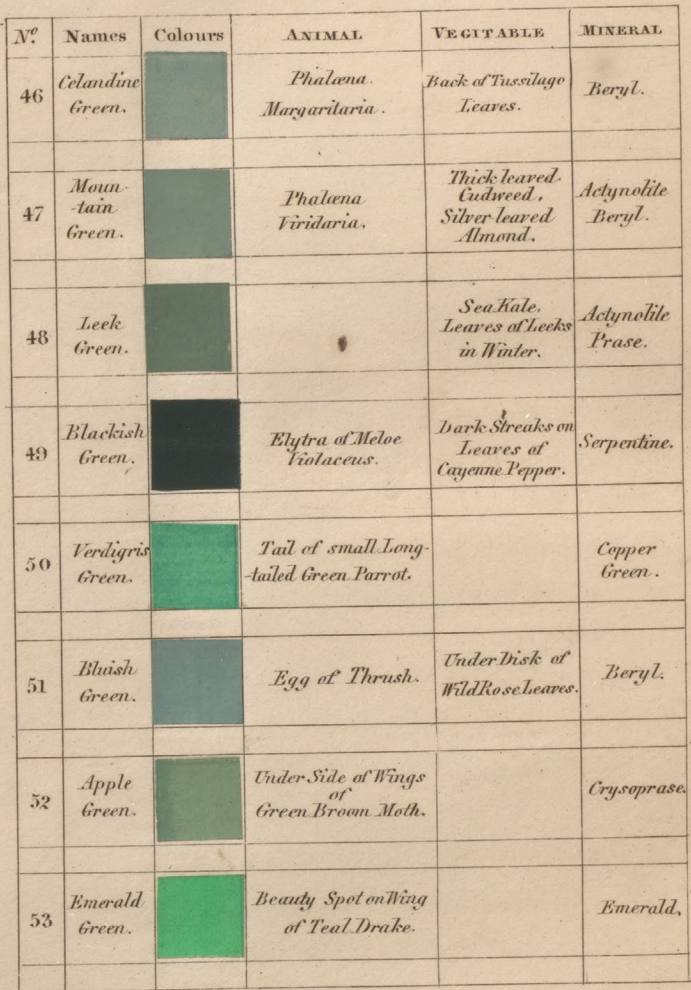 Nº. Names Colours ANIMAL VEGITABLE MINERAL
46 Celandine Green. Phalæna Margaritaria. Back of Tussilago Leaves. Beryl.
47 Moun-
-tain
Green. Phalæna
Viridaria. Thick leaved
Cudweed,
Silver leaved
Almond. Actynolite
Beryl.
48 Leek
Green. Sea Kale.
Leaves of Leeks
in Winter. Actynolite
Prase.
49 Blackish
Green. Elytra of Meloe
Violaceus. Dark Streaks on
Leaves of
Cayenne Pepper. Serpentine.
50 Verdigris
Green. Tail of small Long-
-tailed Green Parrot. Copper
Green.
51 Bluish
Green. Egg of Thrush. Under Disk of
Wild Rose Leaves. Beryl.
52 Apple
Green. Under Side of Wings
of
Green Broom Moth. Crysoprase.
53 Emerald
Green. Beauty Spot on Wing
of Teal Drake. Emerald.